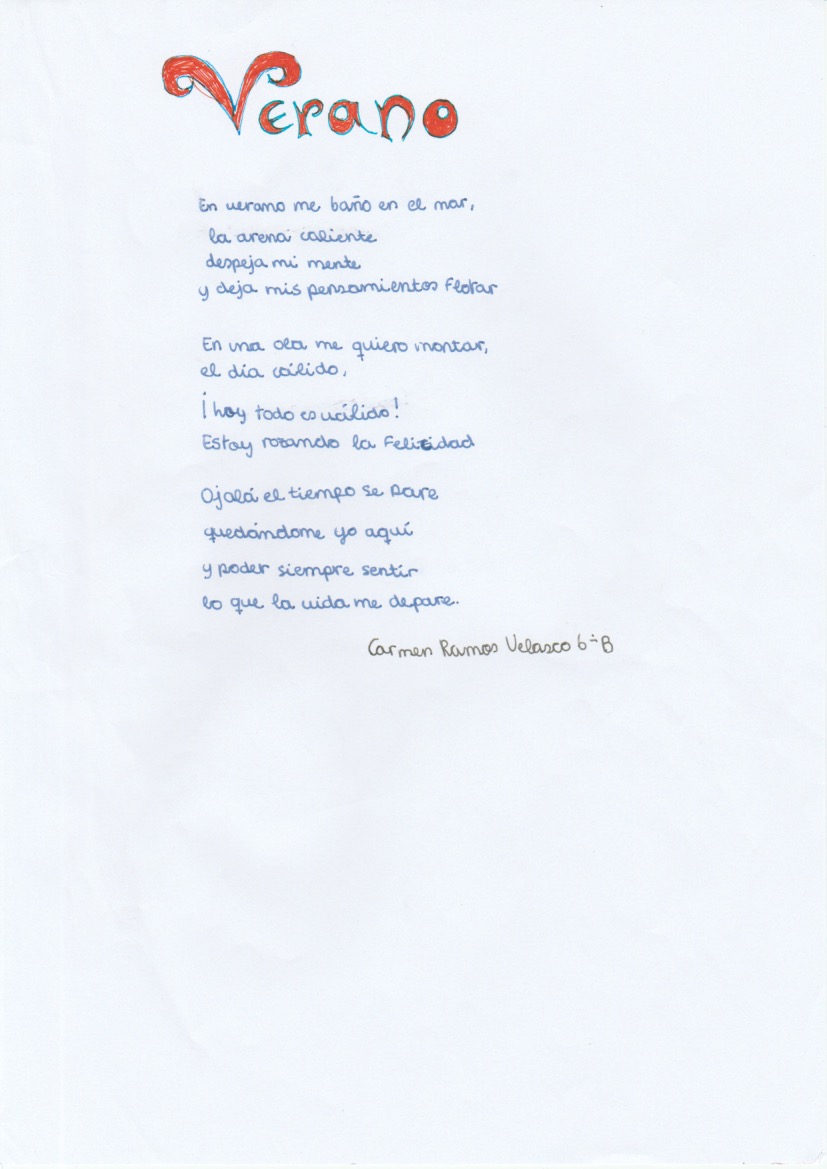 Verano
En verano me baño en el mar,
la arena caliente
despeja mi mente
y deja mis pensamientos flotar
En una ola me quiero montar,
el día cálido,
¡hoy todo es válido!
Estoy rozando la felicidad
Ojalá el tiempo se pare
quedándome yo aquí
y poder siempre sentir
lo que la vida me depare.
Carmen Ramos Velasco 6º B